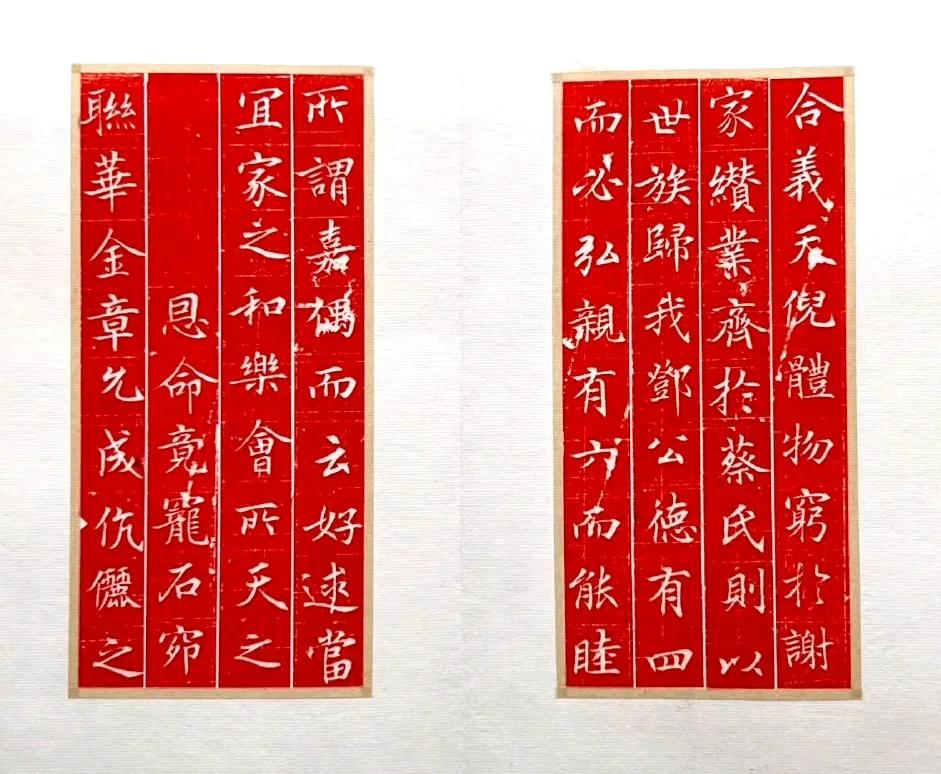 合義天倪體物窮於謝
家纘業齊於蔡氏則以
世族歸我鄧公德有四
而必弘親有六而能睦
所謂嘉偶而云好逑當
宜家之和樂會所天之
恩命竟寵石窌
聯華金章允成伉儷之